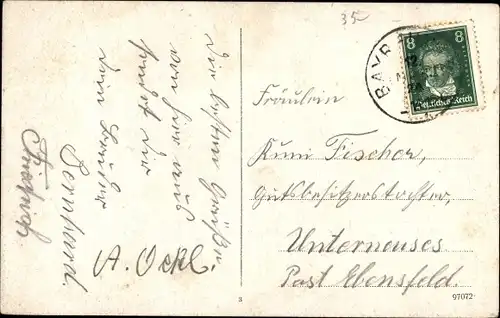 Die besten Grüße
von hier aus
sendet dir
dein Bruder
Bernhard.
A. Öckl.
Friedrich.
35
8 8
Deutsches Reich
BAYR
Fräulein
Kuni Fischer,
Gutsbesitzerstochter,
Unterneuses
Post Ebensfeld.
3
97072